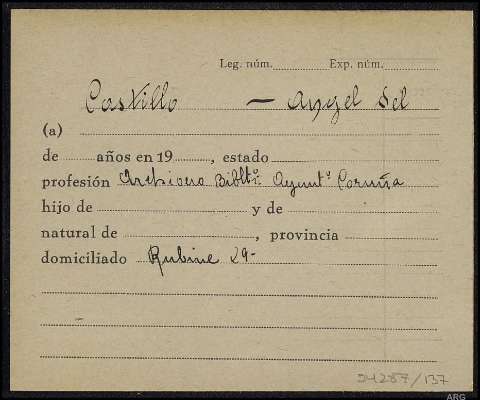 Leg. núm. Exp. núm.
Castillo — Angel del
(a)
de años en 19, estado
profesión Archivero Bibltº. Ayuntº Coruña
hijo de y de
natural de, provincia
domiciliado Rubine 29-
54287/137
ARG